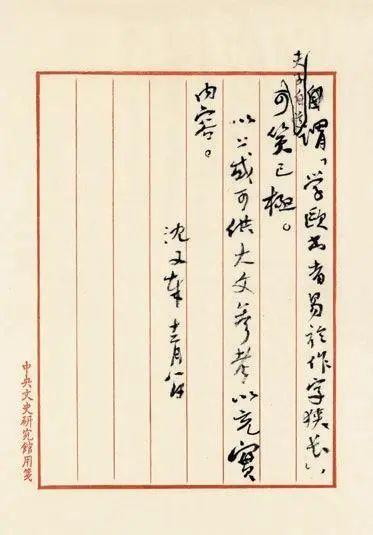 夫子自道
自謂「学欧書者易於作字狭长」，
可笑已極。
以上或可供大文参考以充實
内容。
沈又 十二月八日
中央文史研究館用箋